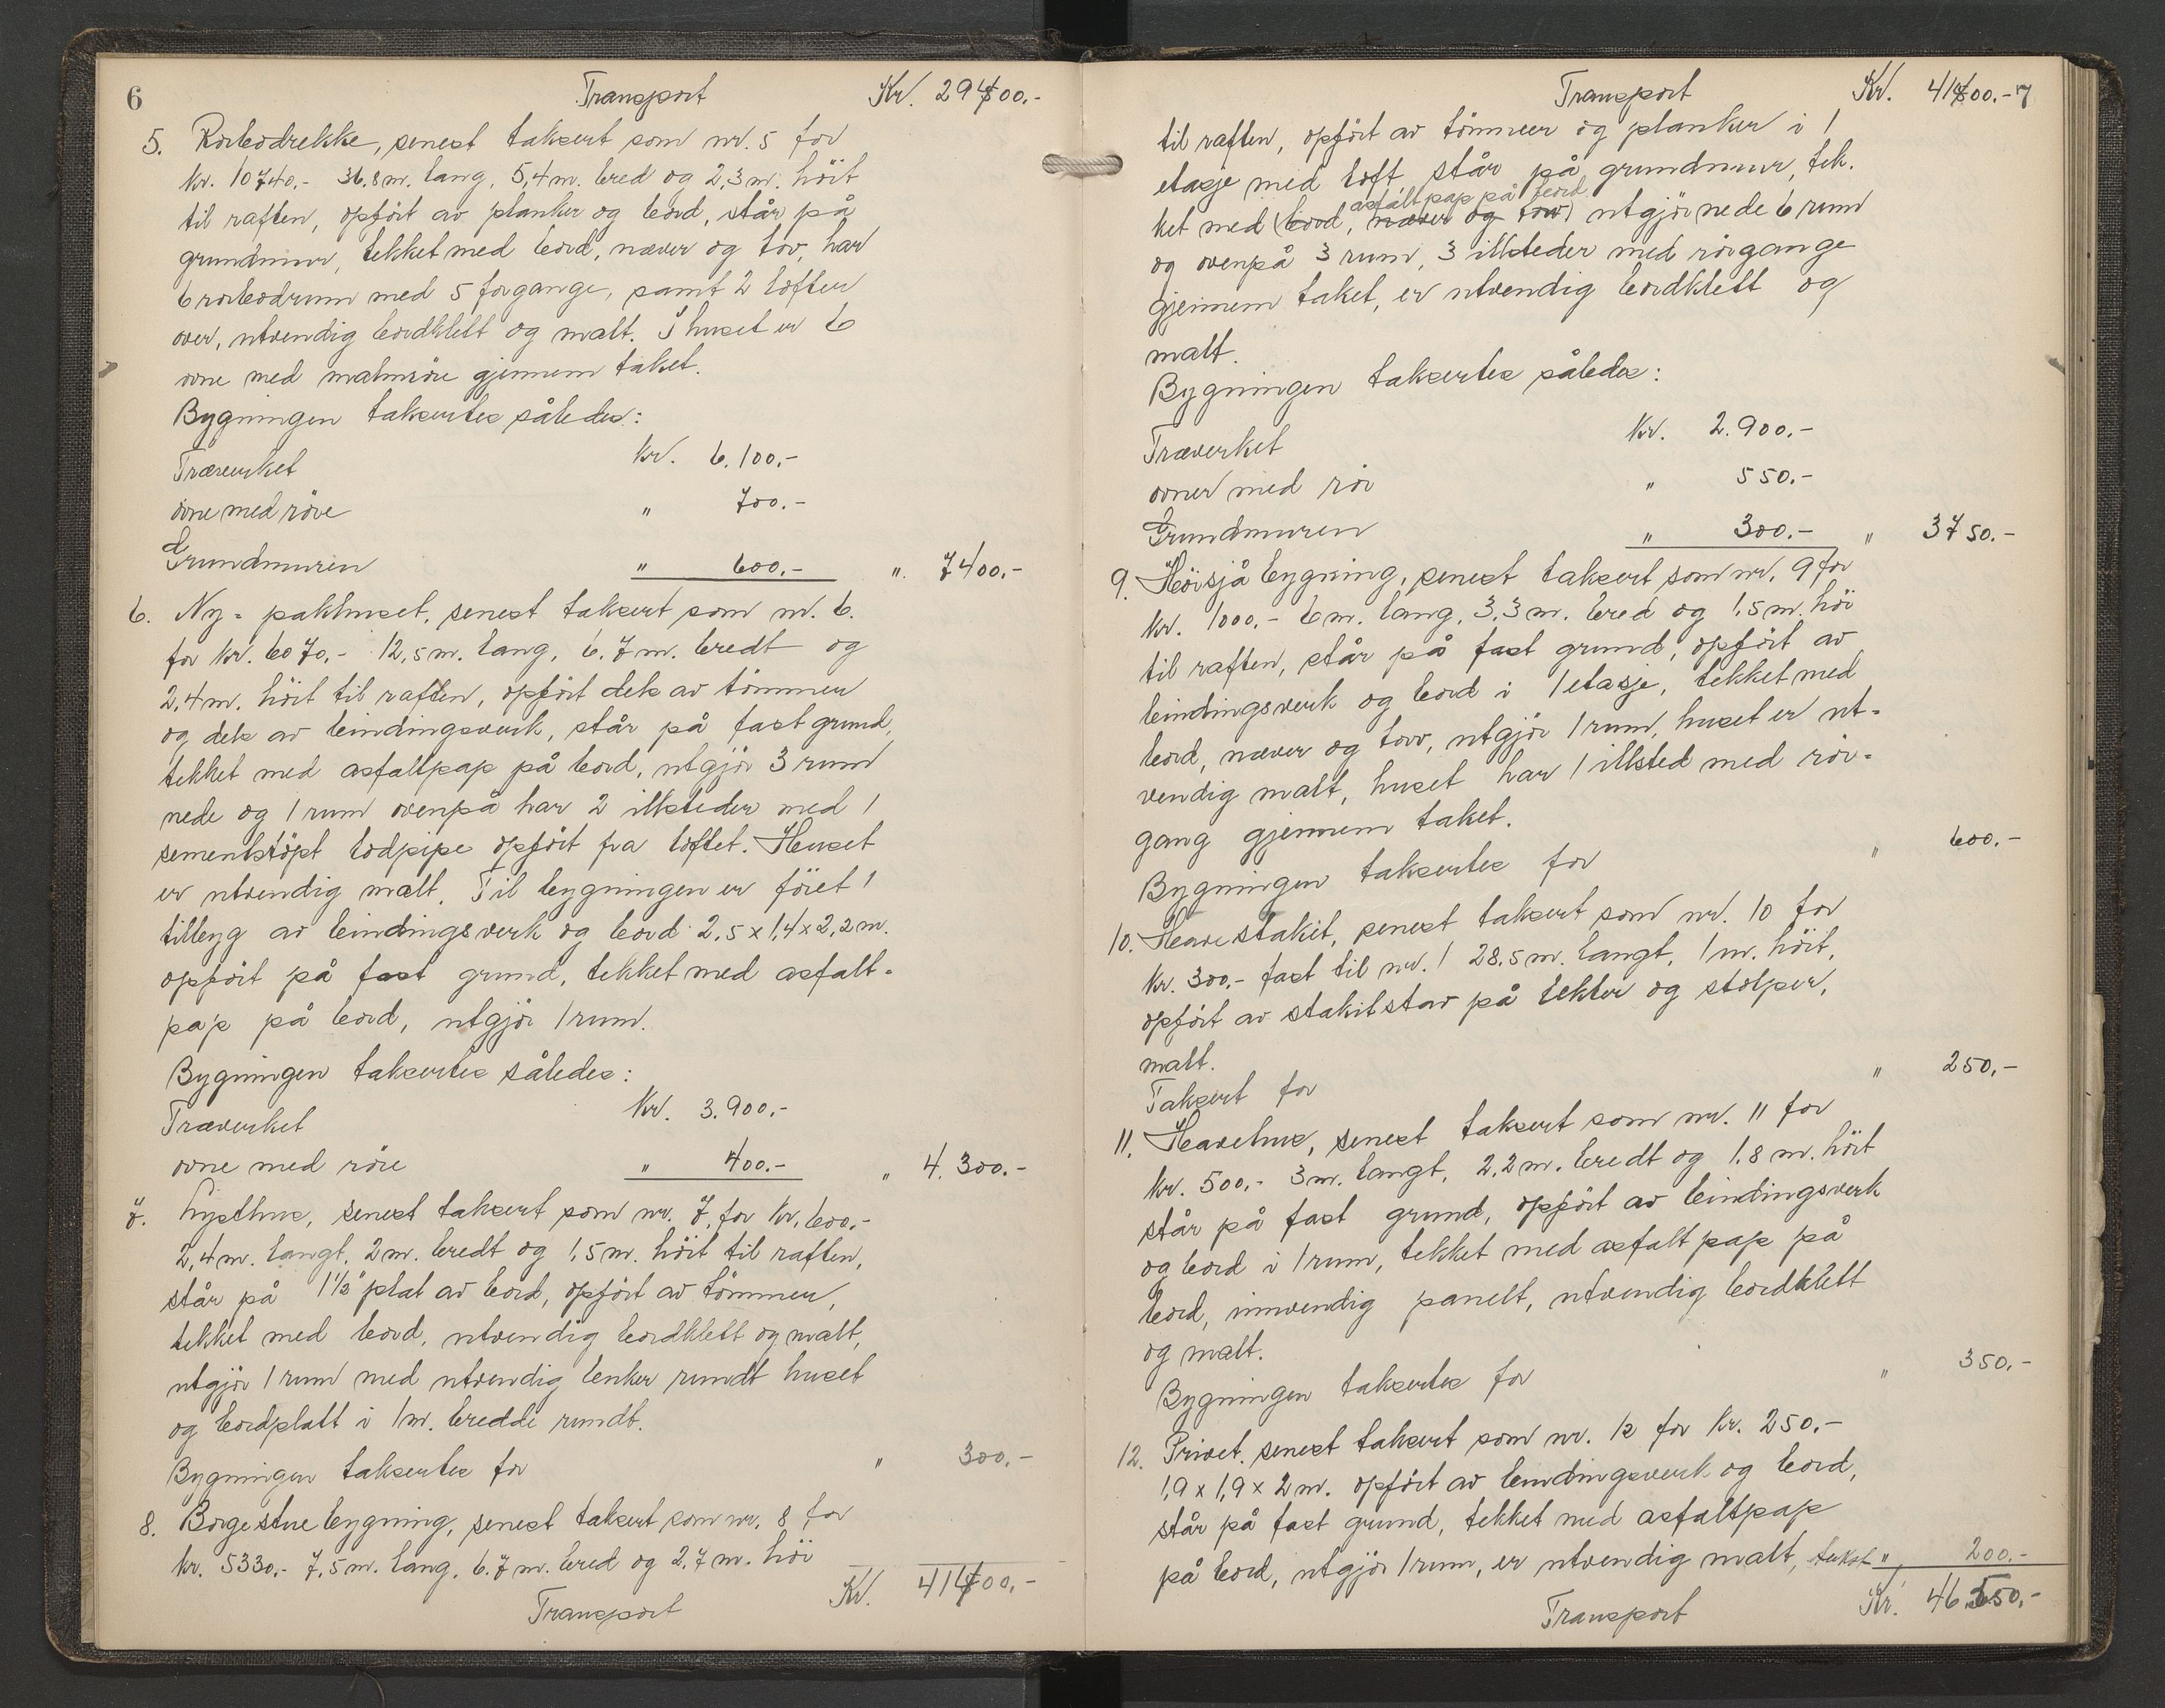 6
Transport Kr. 29400.-
5. Rorbodrekke, senest taksert som nr. 5 for
kr. 10740.- 36,8 m. lang, 5,4 m. bred og 2,3 m. höit
til raften, opfört av planker og bord, står på
grundmur, tekket med bord, næver og tov, har
6 rorbodrum med 5 forgange, samt 2 lofter
over, utvendig bordklett og malt. I huset er 6
ovne med malmröre gjennem taket.
Bygningen taksertes således:
Træverket kr. 6.100.-
ovne med röre " 700.-
Grundmuren " 600.- " 7400.-
6. Ny-pakhuset, senest taksert som nr. 6.
for kr. 6070.- 12,5 m. lang, 6.7 m. bredt og
2,4 m. höit til raften, opfört dels av tömmer
og dels av bindingsverk, står på fast grund,
tekket med asfaltpap på bord, utgjör 3 rum
nede og 1 rum ovenpå har 2 ildsteder med 1
sementstöpt lodpipe opfört fra loftet. Huset
er utvendig malt. Til bygningen er föiet 1
tilbyg av bindingsverk og bord 2,5 x 1,4 x 2,2 m.
opfört på fast grund, tekket med asfalt-
pap på bord, utgjör 1 rum.
Bygningen taksertes således:
Træverket kr. 3.900.-
ovne med röre " 400.- " 4.300.-
7. Lysthus, senest taksert som nr. 7, for kr. 600.-
2,4 m. langt, 2 m. bredt og 1,5 m. höit til raften,
står på 1½" plat av bord, opfört av tömmer,
tekket med bord, utvendig bordklett og malt,
utgjör 1 rum med utvendig benker rundt huset
og bordplatt i 1 m. bredde rundt.
Bygningen taksertes for " 300.-
8. Borgestuebygning, senest taksert som nr. 8 for
kr. 5330.- 7,5 m. lang, 6.7 m. bred og 2,7 m. höi
Transport Kr. 41400.-
Transport Kr. 41400.- 7
til raften, opfört av tömmer og planker i 1
etasje med loft står på grundmur, tek-
asfaltpap på bord
ket med (bord, næver og tov) utgjör nede 6 rum
og ovenpå 3 rum, 3 ildsteder med rörgange
gjennem taket, er utvendig bordklett og
malt.
Bygningen taksertes således:
Træverket kr. 2.900.-
ovner med rör " 550.-
Grundmuren " 300.- " 3750.-
9. Höisjåbygning, senest taksert som nr. 9 for
kr. 1000.- 6 m. lang, 3,3 m. bred og 1,5 m. höi
til raften, står på fast grund, opfört av
bindingsverk og bord i 1 etasje, tekket med
bord, næver og torv, utgjör 1 rum, huset er ut-
vendig malt, huset har 1 illsted med rör-
gang gjennem taket.
Bygningen taksertes for " 600.-
10. Havestakit, senest taksert som nr. 10 for
kr. 300.- fast til nr. 1 28.5 m. langt, 1 m. höit,
opfört av stakitstav på lekter og stolper,
malt.
Taksert for " 250.-
11. Havehus, senest taksert som nr. 11 for
kr. 500.- 3 m. langt, 2,2 m. bredt og 1,8 m. höit
står på fast grund, opfört av bindingsverk
og bord i 1 rum, tekket med asfaltpap på
bord, innvendig panelt, utvendig bordklett
og malt.
Bygningen taksertes for " 350.-
12. Privet, senest taksert som nr. 12 for kr. 250.-
1,9 x 1,9 x 2 m. opfört av bindingsverk og bord,
står på fast grund, tekket med asfaltpap
på bord, utgjör 1 rum, er utvendig malt, takst " 200.-
Transport Kr. 46.550.-